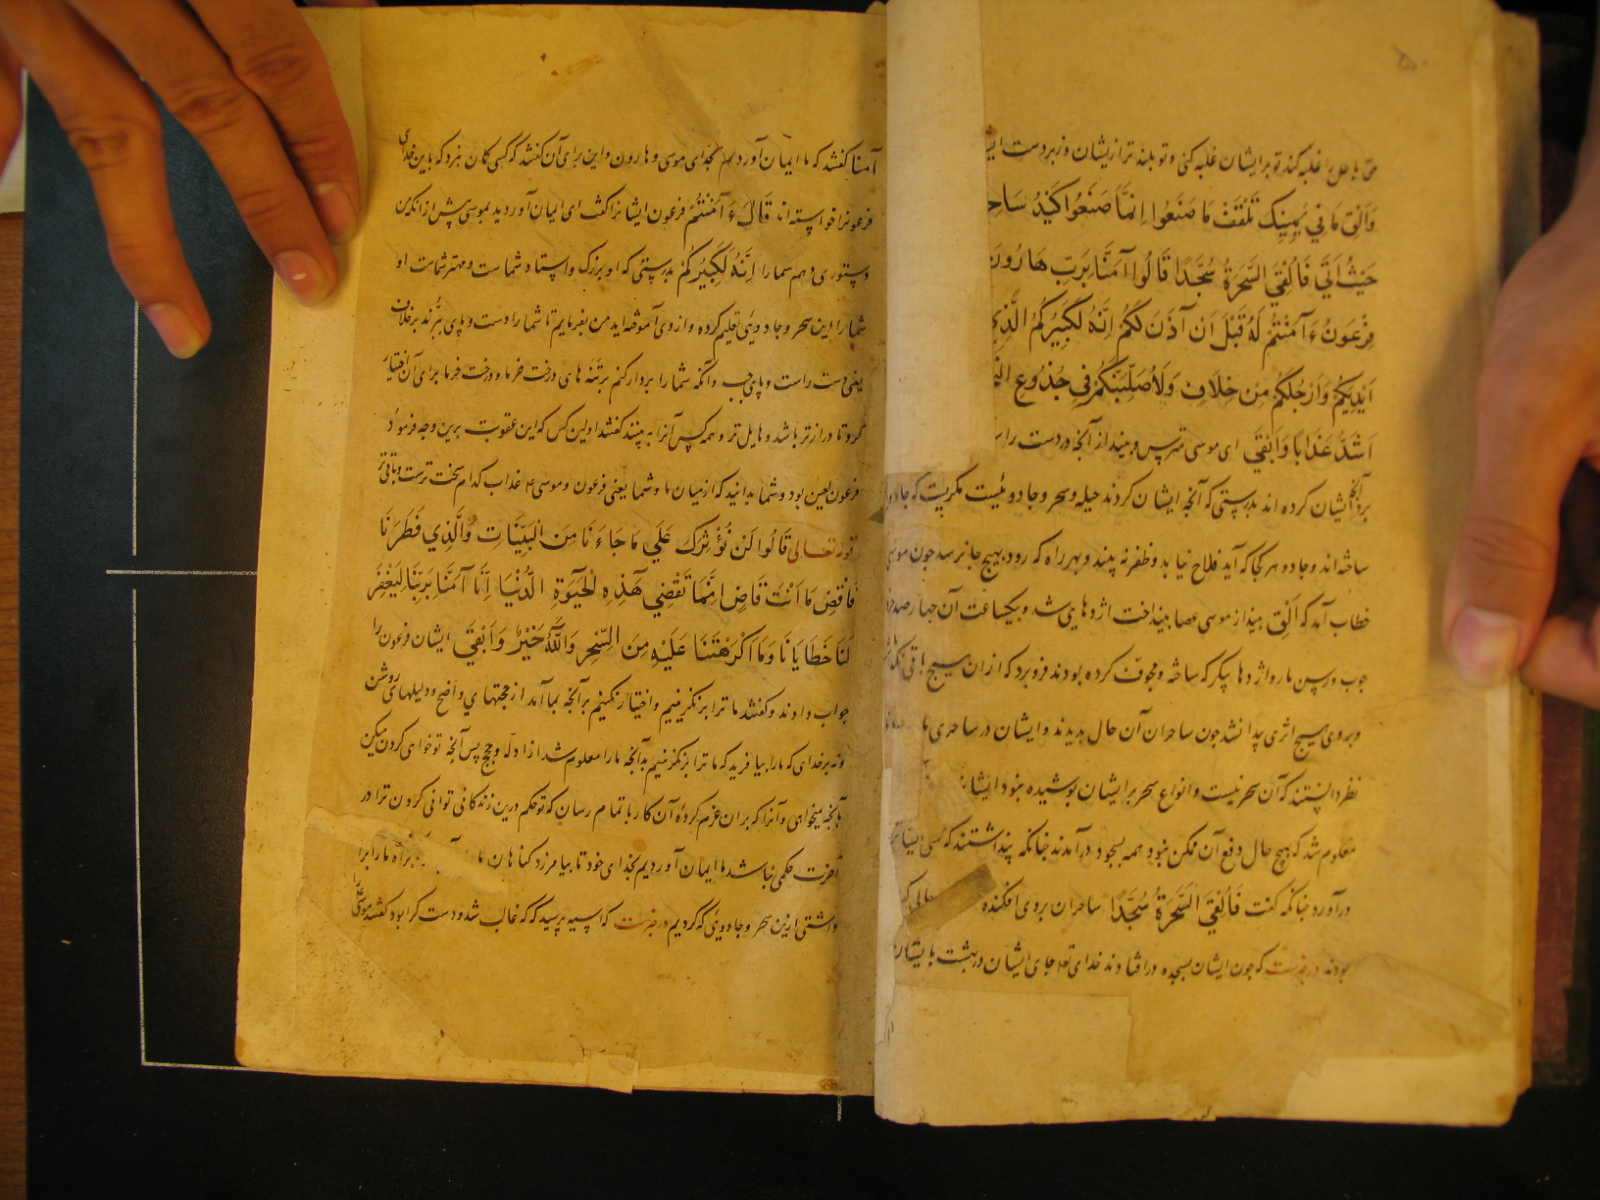 حق با باطل را غلبه کند تو بر ایشان غلبه کنی و تو بلند تر از یشان و زبردست
وَاَلْقِ مَا فِي يَمِينِكَ تَلْقَفْ مَا صَنَعُوا اِنَّمَا صَنَعُوا كَيْدُ سَاحِ
حَيْثُ اَتَي فَاُلْقِيَ السَّحَرَةُ سُجَّدًا قَالُوا آمَنَّا بِرَبِّ هَارُونَ
فِرْعَوْنُ ءَآمَنْتُمْ لَهُ قَبْلَ اَنْ آذَنَ لَكُمْ اِنَّهُ لَكَبِيرُكُمُ الَّذِي
اَيْدِيَكُمْ وَاَرْجُلَكُمْ مِنْ خِلَافٍ وَلَاُصَلِّبَنَّكُمْ فِي جُذُوعِ
اَشَدُّ عَذَابًا وَاَبْقَي ای موسی مترس و بینداز آنچه در دست
ایشان کرده اند بدرستی که آنچه ایشان کردند حیله و سحر و جادوئیست مکریست که
ساخته اند و جادو هر کجا که آید فلاح نیابد و ظفر نه بیند و بهر راه که رود بهیچ جا نرسد جون موسی
خطاب آمد که اَلْقِ بینداز موسی عصا بینداخت اژدهای شد و بیکساعت آن
جوب و رسن مار و اژدها پیکر که ساخته و مجوف کرده بودند فرو برد که ازان هیچ باقی
و بروی هیچ اثری پیدا نشد جون ساحران آن حال بدیدند و ایشان در ساحری
نظر دانستند که آن سحر نیست و انواع سحر بر ایشان پوشیده نبود ایشا
معلوم شد که بهیچ حال دفع آن ممکن نبود همه بسجود درآمدند جنانکه پنداشتند که کسی
درآورد جنانکه گفت فَاُلْقِيَ السَّحَرَةُ سُجَّدًا ساحران بروی افکنده
بودند در خبرست که جون ایشان بسجده در افتادند خدای تع جای ایشان در بهشت با یشان
آمنا گفتند که ما ایمان آوردیم بخدای موسی و هارون و این برای آن گفتند که کسی گمان نبرد که باین خدای
فرعونرا خواسته اند قَالَ ءَآمَنْتُمْ فرعون ایشانرا گفت ای ایمان آوردید بموسی پیش از انکه من
دستوری دهم شما را اِنَّهُ لَكَبِيرُكُمْ بدرستی که او بزرگ و استاد شماست و مهتر شماست او
شما را این سحر و جادویی تعلیم کرده و از وی آموخته اید من بفرمایم تا شما را دست و پای ببرند بر خلاف
یعنی دست راست و پای جب و آنگه شما را بردار کنم بر تنه های درخت خرما و درخت خرما برای آن اختیار
کرد تا دراز تر باشد و هایل تر و همه کس آنرا به بینند گفتند اولین کس که این عقوبت برین وجه فرمود
فرعون لعین بود و شما بدانید که از میان ما و شما یعنی فرعون و موسی ع عذاب کدام سخت ترست و باقی تر
قوله تعالی قَالُوا لَنْ نُؤْثِرَكَ عَلَي مَا جَاءَنَا مِنَ الْبَيِّنَاتِ وَالَّذِي فَطَرَنَا
فَاقْضِ مَا اَنْتَ قَاضٍ اِنَّمَا تَقْضِي هَذِهِ الْحَيَوةَ الدُّنْيَا اِنَّا آمَنَّا بِرَبِّنَا لِيَغْفِرَ
لَنَا خَطَايَانَا وَمَا اَكْرَهْتَنَا عَلَيْهِ مِنَ السِّحْرِ وَاللَّهُ خَيْرٌ وَاَبْقَي ایشان فرعون را
جواب دادند و گفتند ما ترا بر نگزینیم و اختیار نکنیم بر آنچه بما آمد از حجتهای واضح و دلیلهای روشن
و نه بر خدای که ما را بیافرید که ما ترا بر نگزینیم بر آنچه ما را معلوم شد از ادله و حجج پس آنچه تو خوای کردن میکن
آنچه میخواهی و آنرا که بران عزم کرده آن کار را بتمام رسان که تو حکم درین زندگانی توانی کردن ترا در
آخرت حکمی نباشد ما ایمان آوردیم بخدای خود تا بیامرزد گناهان ما
داشتی ازین سحر و جادویی که کردیم در خبرست که آسیه پرسید که که غالب شد و دست کرا بود گفتند موسی را